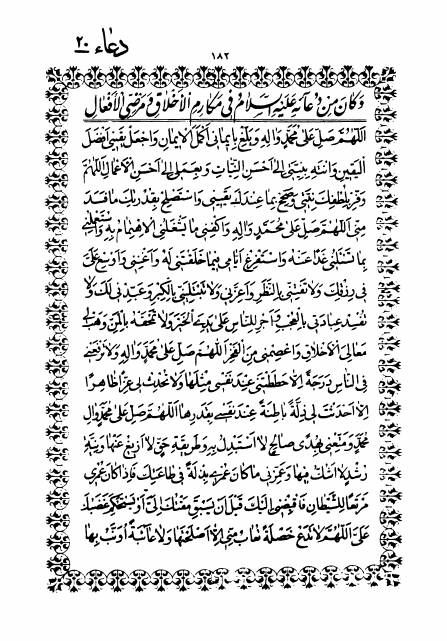 دعاء ٢٠
١٨٢
وَكَانَ مِنْ دُعَائِهِ عَلَيْهِ السَّلَامُ فِي مَكَارِمِ الْأَخْلَاقِ وَمَرْضِيِّ الْأَفْعَالِ
اَللّٰهُمَّ صَلِّ عَلٰى مُحَمَّدٍ وَاٰلِهِ وَبَلِّغْ بِاِيمَانِي اَكْمَلَ الْاِيمَانِ وَاجْعَلْ يَقِينِي اَفْضَلَ
الْيَقِينِ وَانْتَهِ بِنِيَّتِي اِلٰى اَحْسَنِ النِّيَّاتِ وَبِعَمَلِي اِلٰى اَحْسَنِ الْاَعْمَالِ اَللّٰهُمَّ
وَفِّرْ بِلُطْفِكَ نِيَّتِي وَصَحِّحْ بِمَا عِنْدَكَ يَقِينِي وَاسْتَصْلِحْ بِقُدْرَتِكَ مَا فَسَدَ
مِنِّي اَللّٰهُمَّ صَلِّ عَلٰى مُحَمَّدٍ وَاٰلِهِ وَاكْفِنِي مَا يَشْغَلُنِي الْاِهْتِمَامُ بِهِ وَاسْتَعْمِلْنِي
بِمَا تَسْئَلُنِي غَدًا عَنْهُ وَاسْتَفْرِغْ اَيَّامِي فِيمَا خَلَقْتَنِي لَهُ وَاَغْنِنِي وَاَوْسِعْ عَلَيَّ
فِي رِزْقِكَ وَلَا تَفْتِنِّي بِالنَّظَرِ وَاَعِزَّنِي وَلَا تَبْتَلِيَنِّي بِالْكِبْرِ وَعَبِّدْنِي لَكَ وَلَا
تُفْسِدْ عِبَادَتِي بِالْعُجْبِ وَاَجْرِ لِلنَّاسِ عَلٰى يَدَيَّ الْخَيْرَ وَلَا تَمْحَقْهُ بِالْمَنِّ وَهَبْ لِي
مَعَالِيَ الْاَخْلَاقِ وَاعْصِمْنِي مِنَ الْفَخْرِ اَللّٰهُمَّ صَلِّ عَلٰى مُحَمَّدٍ وَاٰلِهِ وَلَا تَرْفَعْنِي
فِي النَّاسِ دَرَجَةً اِلَّا حَطَطْتَنِي عِنْدَ نَفْسِي مِثْلَهَا وَلَا تُحْدِثْ لِي عِزًّا ظَاهِرًا
اِلَّا اَحْدَثْتَ لِي ذِلَّةً بَاطِنَةً عِنْدَ نَفْسِي بِقَدَرِهَا اَللّٰهُمَّ صَلِّ عَلٰى مُحَمَّدٍ وَاٰلِ
مُحَمَّدٍ وَمَتِّعْنِي بِهُدًى صَالِحٍ لَا اَسْتَبْدِلُ بِهِ وَطَرِيقَةِ حَقٍّ لَا اَزِيغُ عَنْهَا وَنِيَّةِ
رُشْدٍ لَا اَشُكُّ فِيهَا وَعَمِّرْنِي مَا كَانَ عُمْرِي بِذْلَةً فِي طَاعَتِكَ فَاِذَا كَانَ عُمْرِي
مَرْتَعًا لِلشَّيْطَانِ فَاقْبِضْنِي اِلَيْكَ قَبْلَ اَنْ يَسْبِقَ مَقْتُكَ اِلَيَّ اَوْ يَسْتَحْكِمَ غَضَبُكَ
عَلَيَّ اَللّٰهُمَّ لَا تَدَعْ خَصْلَةً تُعَابُ مِنِّي اِلَّا اَصْلَحْتَهَا وَلَا عَائِبَةً اُوَنَّبُ بِهَا